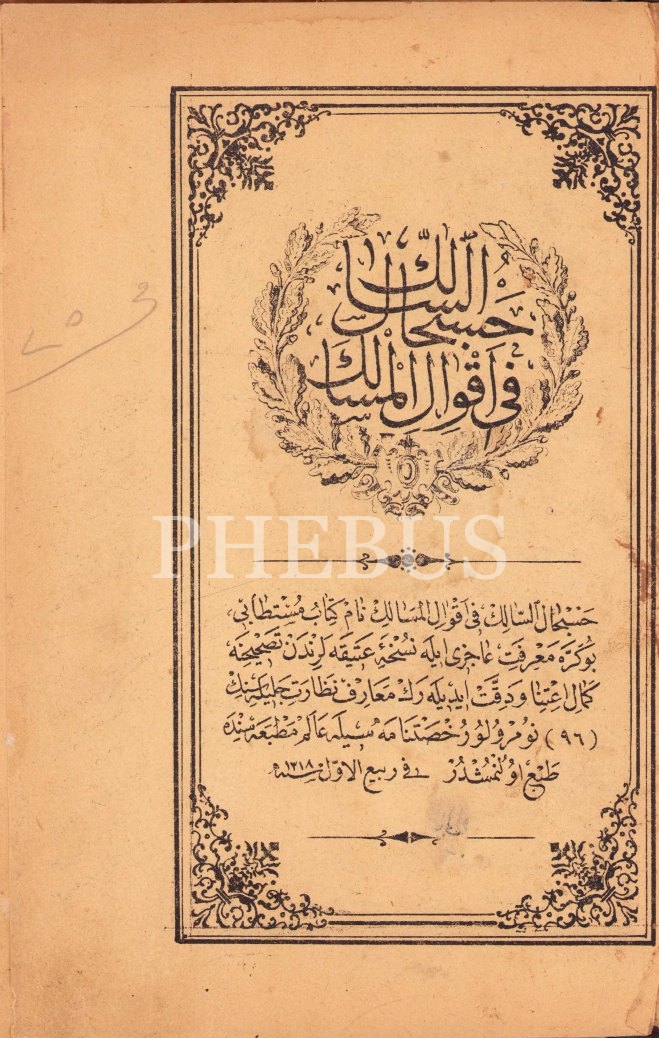 حسبحال السالك
فى اقوال المسالك
PHEBUS
حسبحال السالك فى اقوال المسالك نام كتاب مستطابى
بوكره معرفت عاجزى ايله نسخۀ عتيقه لرندن تصحيحنه
كمال اعتنا ودقت ايديله رك معارف نظارت جليله سنك
(٩٦) نومرولو رخصتنامه سيله عالم مطبعه سنده
طبع اولنمشدر فى ربيع الاول سنه ١٣١٨